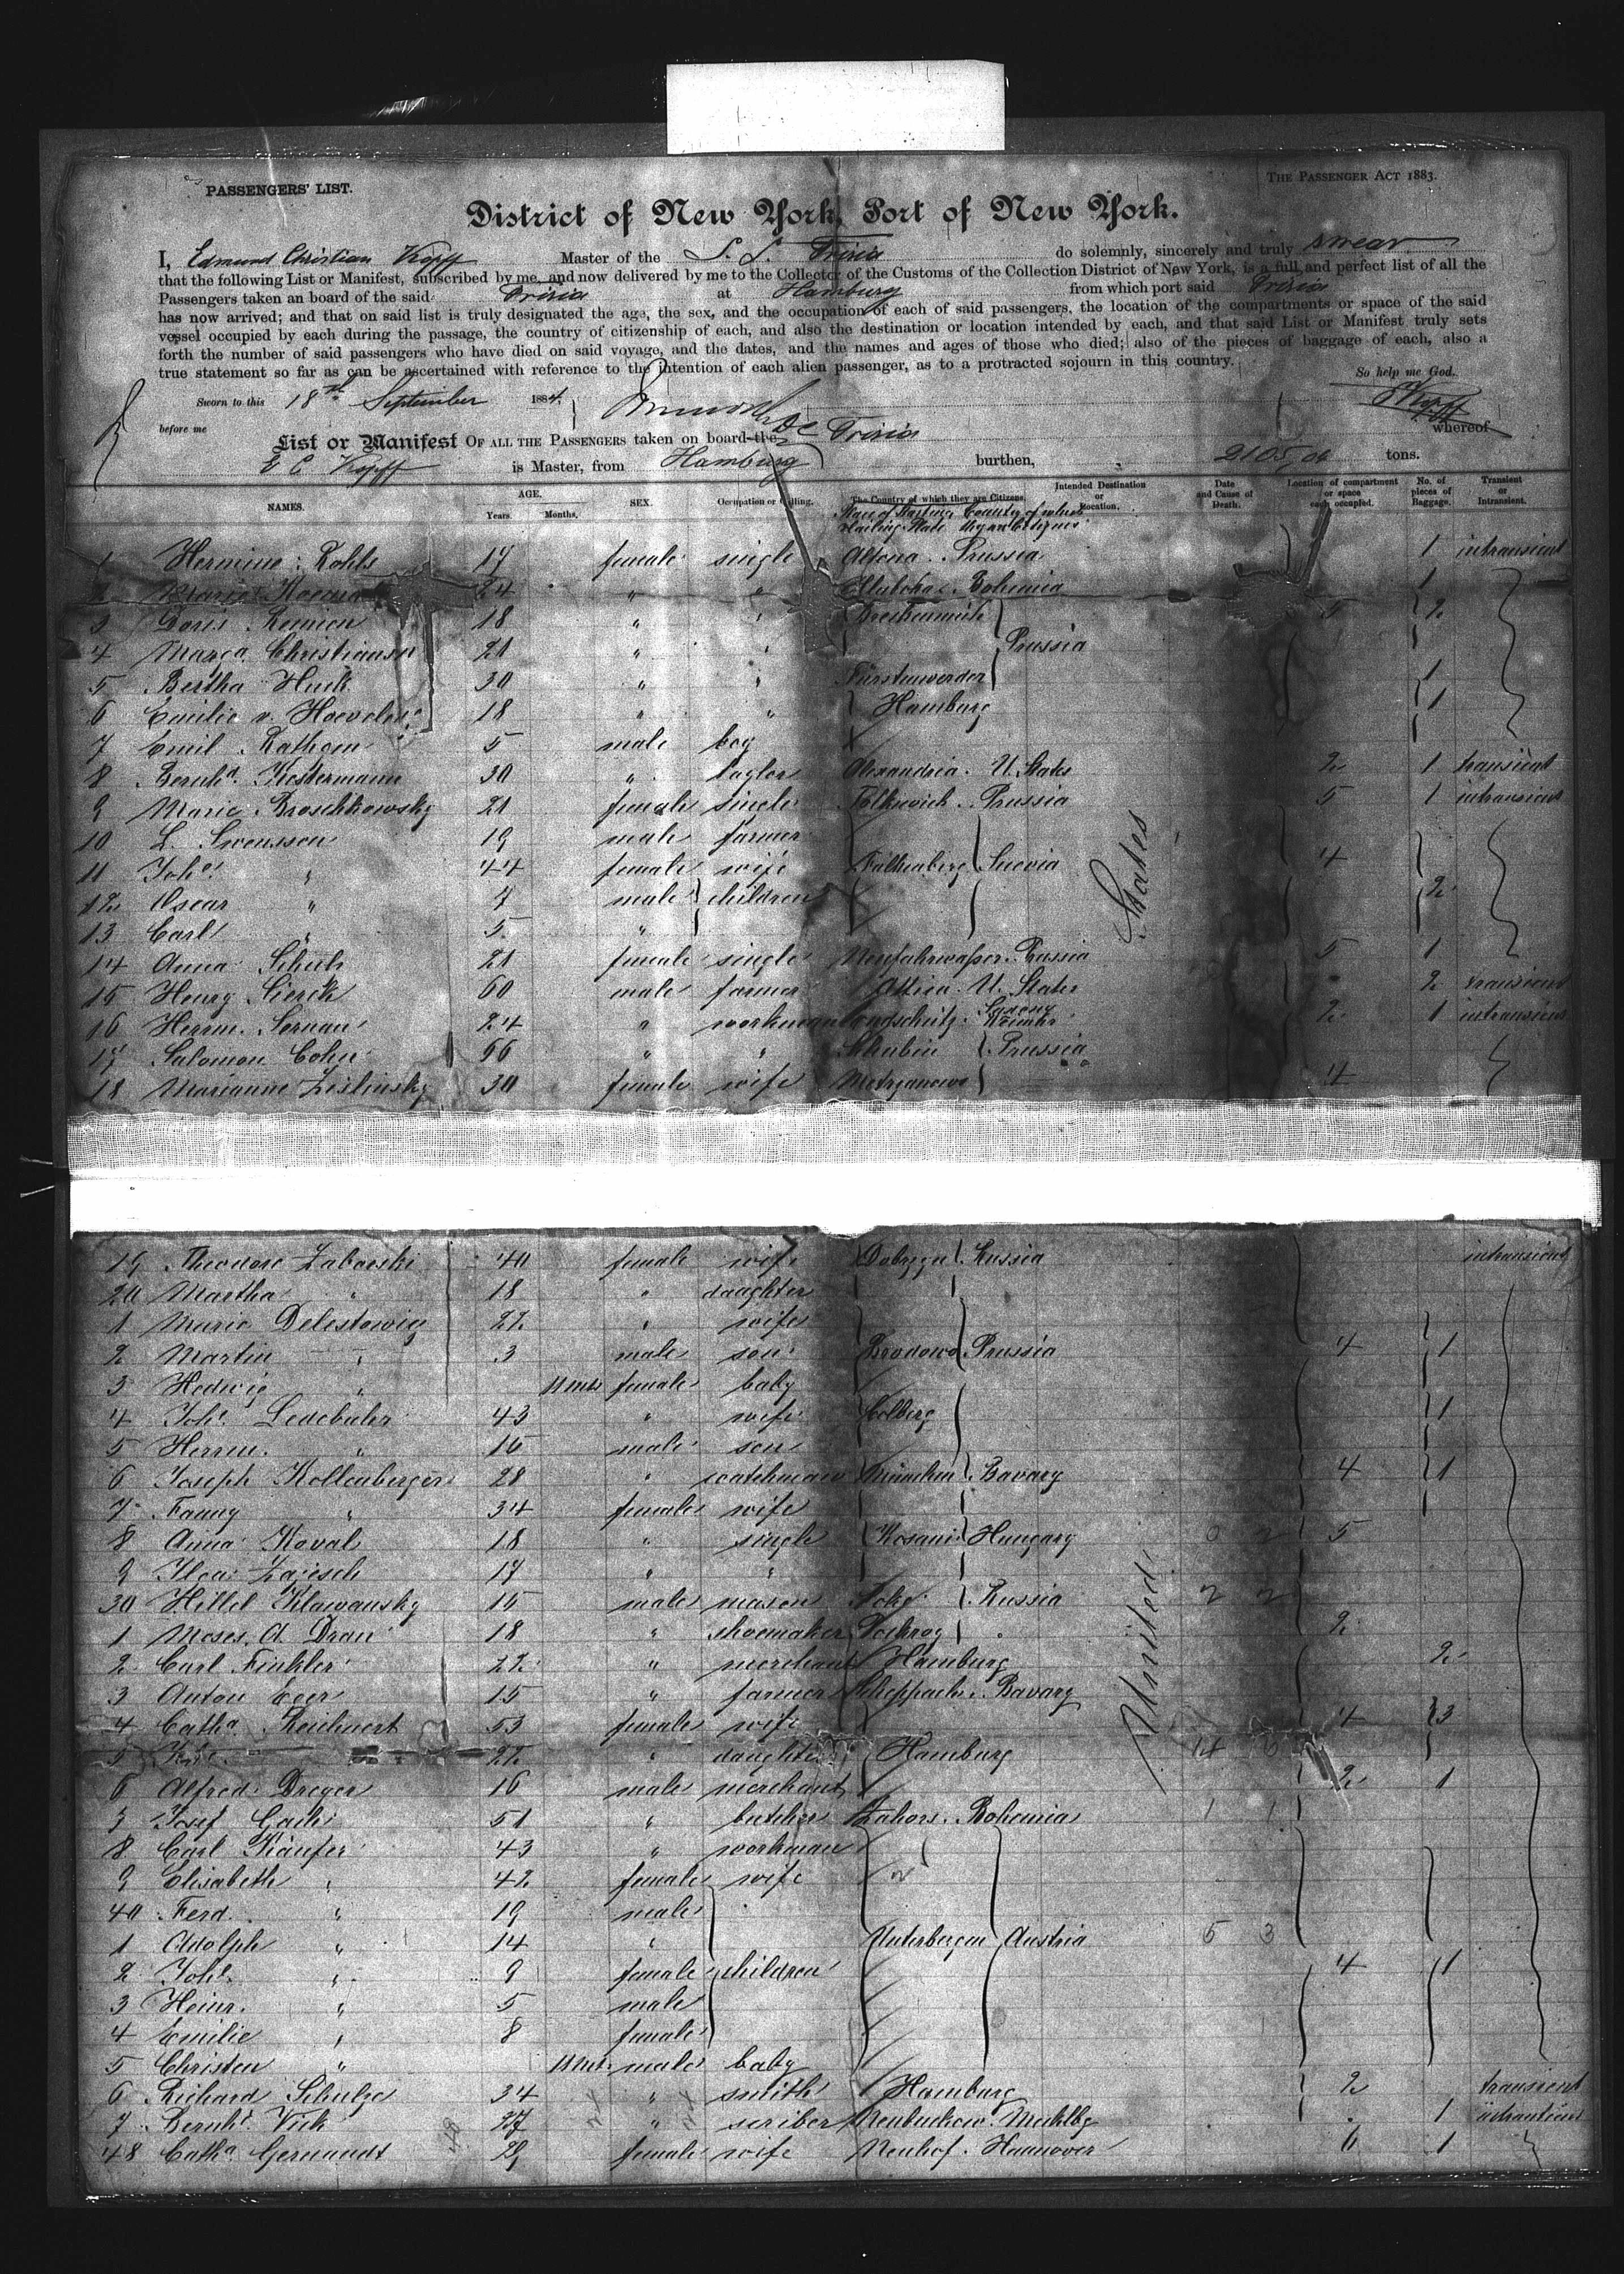 PASSENGERS' LIST.
THE PASSENGER ACT 1883.
District of New York, Port of New York.
I, Edmund Christian Kopff Master of the S. S. Frisia do solemnly, sincerely and truly swear
that the following List or Manifest, subscribed by me, and now delivered by me to the Collector of the Customs of the Collection District of New York, is a full and perfect list of all the
Passengers taken an board of the said Frisia at Hamburg from which port said Frisia
has now arrived; and that on said list is truly designated the age, the sex, and the occupation of each of said passengers, the location of the compartments or space of the said
vessel occupied by each during the passage, the country of citizenship of each, and also the destination or location intended by each, and that said List or Manifest truly sets
forth the number of said passengers who have died on said voyage, and the dates, and the names and ages of those who died; also of the pieces of baggage of each, also a
true statement so far as can be ascertained with reference to the intention of each alien passenger, as to a protracted sojourn in this country.
So help me God.
Sworn to this 18th September 1884,
EKopff
before me
List or Manifest OF ALL THE PASSENGERS taken on board the SS Frisia whereof
E C Kopff is Master, from Hamburg burthen, 2105,06 tons.
NAMES. AGE. Years. Months. SEX. Occupation or Calling. The Country of which they are Citizens. Intended Destination or Location. Date and Cause of Death. Location of compartment or space each occupied. No. of pieces of Baggage. Transient or Intransient.
1 Hermine Rohls 17 female single Altona Prussia 1 intransient
2 Marie 24 " " Bohemia 1
3 Doris 18 " " 5 2
4 Marga Christiansen 21 " " Prussia
5 Bertha Huck 30 " " Fürstenwerder 1
6 Emilie v. Hoevelen 18 " " Hamburg 1
7 Emil Rathsen 5 male boy
8 Bernhd. Kestermann 30 " taylor Alexandria U. States 2 1 transient
9 Marie Broschkowsky 21 female single Prussia 5 1 intransient
10 L. Swensson 19 male farmer
11 Johe. " 44 female wife Falkenberg Suevia 4
12 Oscar " 7 male children 2
13 Carl " 5 "
14 Anna Schuh 21 female single Neufahrwasser Prussia 5 1
15 Henry Sierck 60 male farmer Attica U. States " 2 transient
16 Herrm. Sernau 24 " workman 2 1 intransient
17 Salomon Cohn 66 " " Schubin Prussia
18 Marianne Zislinsky 30 female wife 4
States
19 Theodore Zaborski 40 female wife Dobrzyn Russia intransient
20 Martha " 18 " daughter
1 Marie Delestowicz 22 " wife
2 Martin " 3 male son Brodowo Prussia 4 1
3 Hedwig " 11 mts female baby
4 Johe. Ledebuhr 43 " wife Colberg 1
5 Herrm. " 16 male son
6 Joseph Kollenberger 28 " watchman München Bavary 4 1
7 Fanny " 34 female wife
8 Anna Koval 18 " single Kosani Hungary 5
9 17 " "
30 Hillel Klawansky 15 male mason Russia
1 Moses A. Dran 18 " shoemaker " 2
2 Carl Finkler 22 " merchant Hamburg 2
3 Anton Eger 15 " farmer Bavary
4 Catha. Reichert 53 female wife 4 3
5 22 " daughter Hamburg
6 Alfred Dreyer 16 male merchant 2 1
7 Josef 51 " butcher Zahori Bohemia
8 Carl Käufer 43 " workman
9 Elisabeth " 42 female wife
40 Ferd. " 19 male
1 Adolph " 14 " Unterbergen Austria
2 Johe. " 9 female children 4 1
3 Heinr. " 5 male
4 Emilie " 8 female
5 Christen " 11 mts. male baby
6 Richard Schulze 34 " smith Hamburg 2 transient
7 Bernhd. Vick 27 " scriber Neubuckow Mecklbg 1 intransient
48 Catha. Gernandt 29 female wife Neuhof Hannover 6 1
United